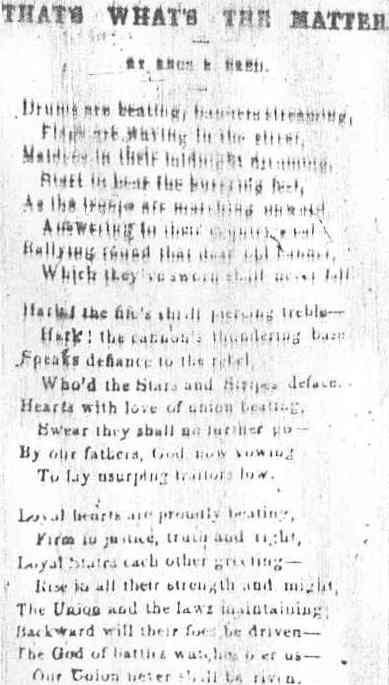 THAT'S WHAT'S THE MATTER.
BY ENOS B. REED.
Drums are beating, banners streaming,
Flags are waving in the street,
Maidens in their midnight dreaming,
Start to hear the hurrying feet,
As the troops are marching onward
Answering to their country's call
Rallying round that dear old banner,
Which they've sworn shall never fall
Hark! the fife's shrill piercing treble—
Hark! the cannon's thundering base
Speaks defiance to the rebel,
Who'd the Stars and Stripes deface.
Hearts with love of union beating,
Swear they shall no further go—
By our fathers, God, now vowing
To lay usurping traitors low.
Loyal hearts are proudly beating,
Firm in justice, truth and right,
Loyal States each other greeting—
Rise in all their strength and might,
The Union and the laws maintaining;
Backward will their foes be driven—
The God of battles watches o'er us—
Our Union never shall be riven.